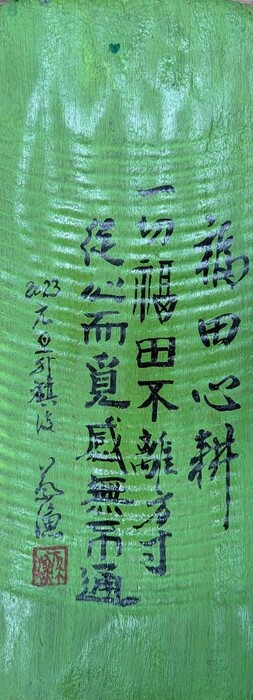 福田心耕
一切福田不離方寸
從心而覓感無不通
2023元旦於旗後
漁